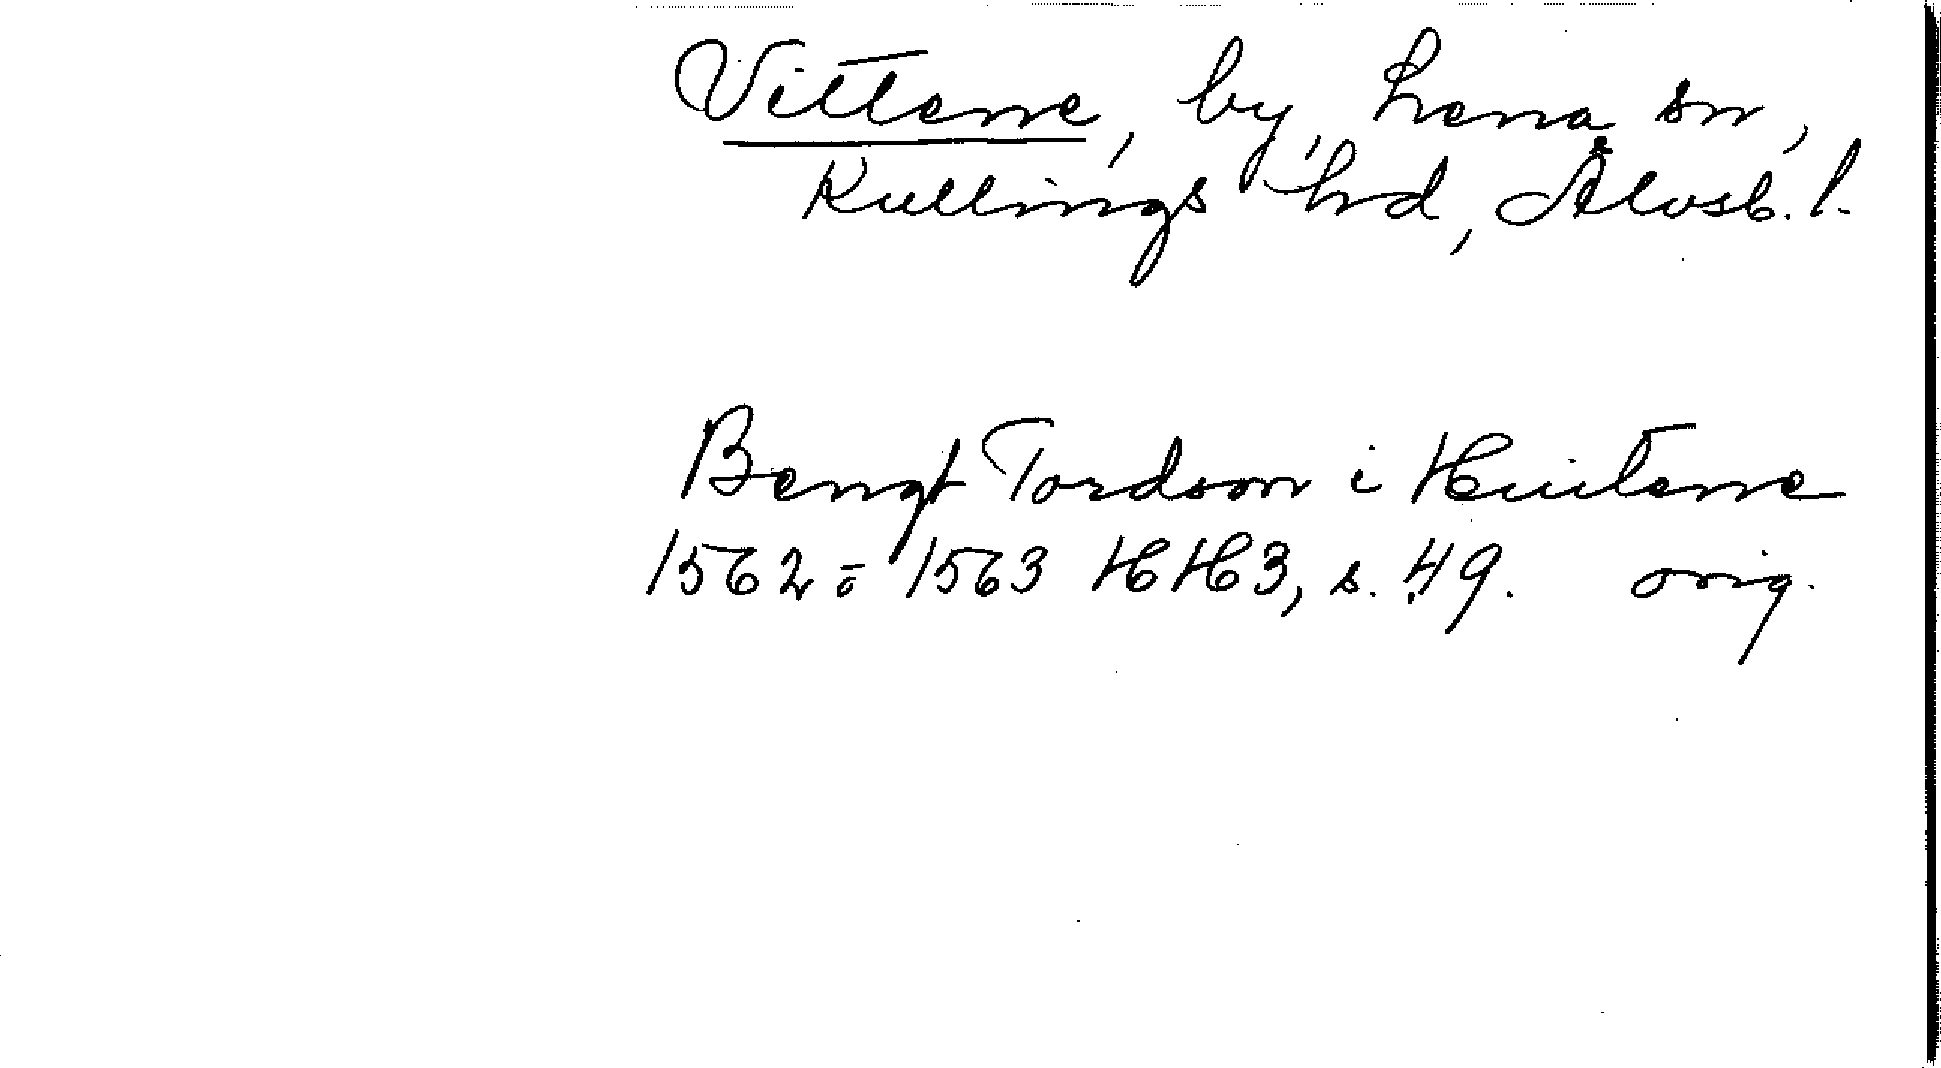 Vittene, by, Lena sn,
Kullings hd, Älvsb. l.
Bengt Tordson i Huitene
1562 ō 1563 HH3, s. 49. orig.